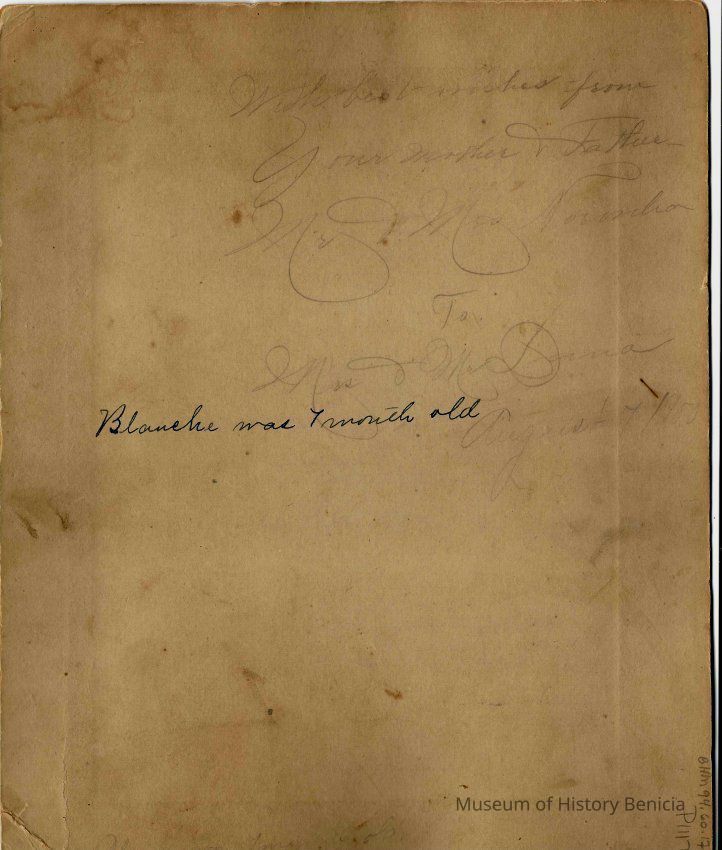 With best wishes from
Your mother & Father
Mr & Mrs
To
Mrs & Mr
Blanche was 7 month old
August
Museum of History Benicia